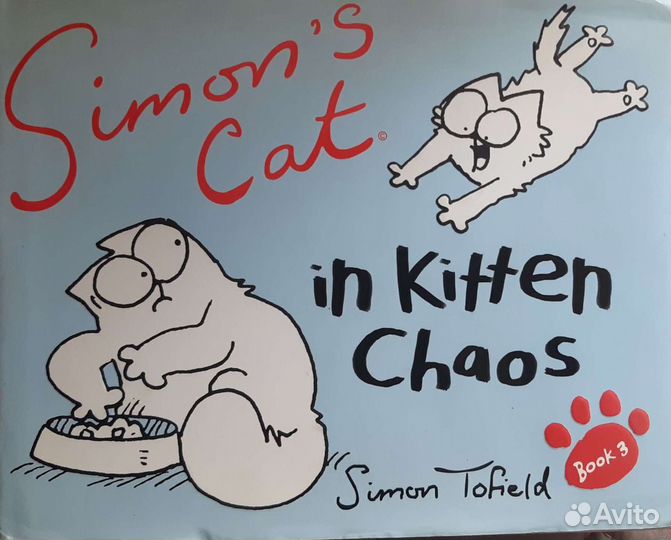 Simon's
Cat ©
in Kitten
Chaos
Simon Tofield
Book 3
Avito